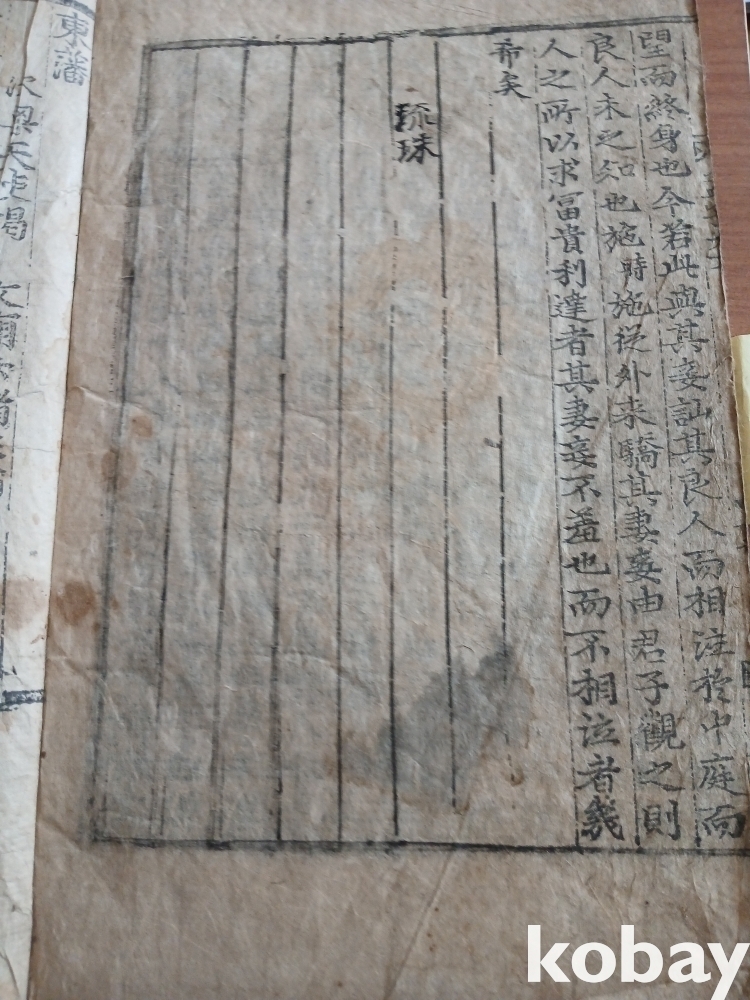 望而終身也今若此與其妾訕其良人而相注於中庭而
良人未之知也施時施從外来驕其妻妾由君子觀之則
人之所以求冨貴利達者其妻妾不羞也而不相泣者幾
希矣
琉球
東藩
天使謁
kobay